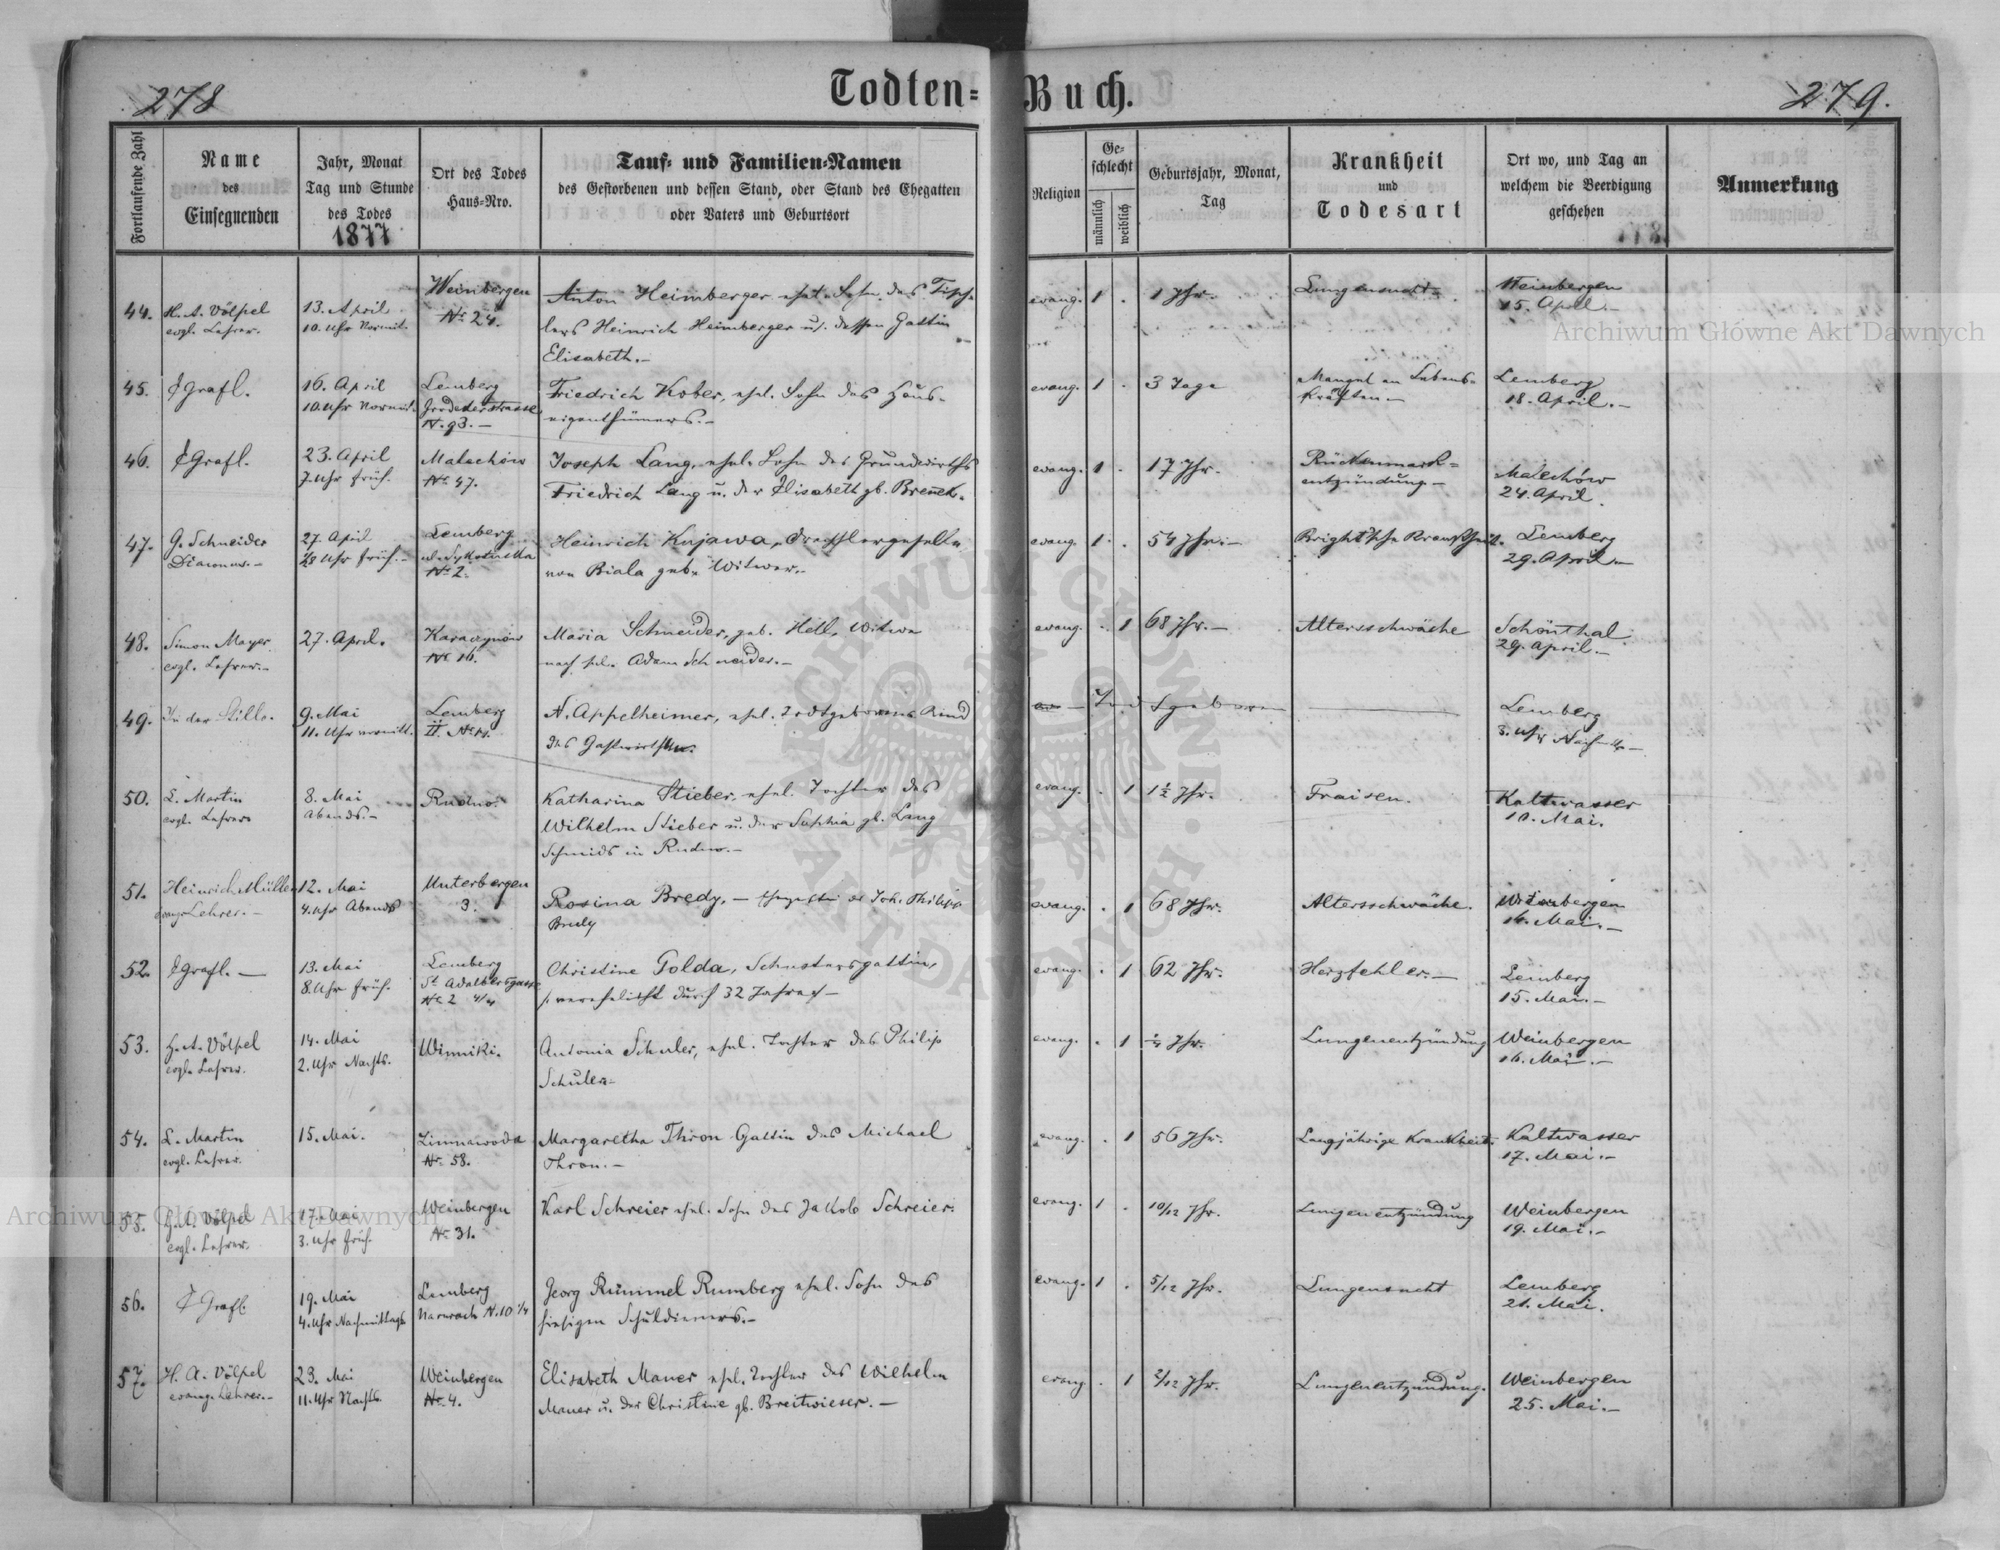 278
Todten-Buch.
279.
Fortlaufende Zahl
Name
des
Einsegnenden
Jahr, Monat
Tag und Stunde
des Todes
1877
Ort des Todes
Haus-Nro.
Tauf- und Familien-Namen
des Gestorbenen und dessen Stand, oder Stand des Ehegatten
oder Vaters und Geburtsort
Religion
Ge-
schlecht
männlich
weiblich
Geburtsjahr, Monat,
Tag
Krankheit
und
Todesart
Ort wo, und Tag an
welchem die Beerdigung
geschehen
Anmerkung
44. H. A. Völpel 13. April Weinbergen Anton Heimberger ehel. Sohn des Tisch- evang. 1 . 1 Jhr. Lungensucht Weinbergen
evgl. Lehrer. 10. Uhr Vormit. Nr. 24. lers Heinrich Heimberger u. dessen Gattin 15. April.–
Elisabeth.–
45. Grafl. 16. April Lemberg Friedrich Kober, ehel. Sohn des Haus- evang. 1 . 3 Tage Mangel an Lebens- Lemberg
10. Uhr Vormit. Grodekerstrasse eigenthümers.– kräften.– 18. April.–
N. 93.–
46. Grafl. 23. April Malechów Joseph Lang, ehel. Sohn des Grundwirths evang. 1 . 17 Jhr. Rückenmark- Malechów
7. Uhr früh. Nr. 47. Friedrich Lang u. der Elisabeth gb. Brenek. entzündung– 24. April.
47. G. Schneider 27. April Lemberg Heinrich Kujawa, Drechslergeselle evang. 1 . 54 Jhr.– Bright'sche Krankheit. Lemberg
Diaconus.– Uhr früh.– Nr. 2. von Biala geb. Witwer.– 29. April.–
48. Simon Mayer 27. April. Karaczynów Maria Schneider, geb. Hell, Witwe evang. . 1 68 Jhr.– Altersschwäche Schönthal
evgl. Lehrer.– Nr. 16. nach sel. Adam Schneider.– 29. April.–
49. In der Stille. 9. Mai Lemberg N. Appelheimer, ehel. todtgebornes Kind Todtgeboren Lemberg
11. Uhr vormitt. II. des Gastwirthes. 3. Uhr Nachm.–
50. L. Martin 8. Mai Rudno. Katharina Stieber, ehel. Tochter des evang. . 1 1½ Jhr. Fraisen. Kaltwasser
evgl. Lehrer Abends.– Wilhelm Stieber u. der Sophia gb. Lang 10. Mai.
Schmids in Rudno.–
51. Heinrich Müller 12. Mai Unterbergen Rosina Bredy, – Ehegattin des Joh. Philipp evang. . 1 68 Jhr. Altersschwäche. Weinbergen
evang. Lehrer.– 4. Uhr Abends 3. Bredy 14. Mai.–
52. Grafl.– 13. Mai Lemberg Christine Tolda, Schustersgattin, evang. . 1 62 Jhr. Herzfehler.– Lemberg
8. Uhr früh. St. Adalbertsgasse verehelicht durch 32 Jahre– 15. Mai.–
Nr. 2 4/4
53. H. A. Völpel 14. Mai Winniki. Antonia Schuler, ehel. Tochter des Philip evang. . 1 Jhr. Lungenentzündung Weinbergen
evgl. Lehrer. 2. Uhr Nachts. Schuler– 16. Mai.–
54. L. Martin 15. Mai. Zimnawoda Margaretha Thron Gattin des Michael evang. . 1 56 Jhr. Langjährige Krankheit. Kaltwasser
evgl. Lehrer. Nr. 58. Thron.– 17. Mai.–
55. H. A. Völpel 17. Mai Weinbergen Karl Schreier ehel. Sohn des Jakob Schreier. evang. 1 . 10/12 Jhr. Lungenentzündung Weinbergen
evgl. Lehrer. 3. Uhr früh. Nr. 31. 19. Mai.–
56. Grafl. 19. Mai Lemberg Georg Rümmel Rumberg ehel. Sohn des evang. 1 . 5/12 Jhr. Lungensucht Lemberg
4. Uhr Nachmittags N. 10 ¼ hiesigen Schuldieners.– 21. Mai.
57. H. A. Völpel 23. Mai Weinbergen Elisabeth Mauer ehel. Tochter des Wilhelm evang . 1 2/12 Jhr. Lungenentzündung. Weinbergen
evang. Lehrer.– 11. Uhr Nachts. Nr. 4. Mauer u. der Christine gb. Breitwieser.– 25. Mai.–
Archiwum Główne Akt Dawnych
Archiwum Główne Akt Dawnych
ARCHIWUM GŁÓWNE AKT DAWNYCH